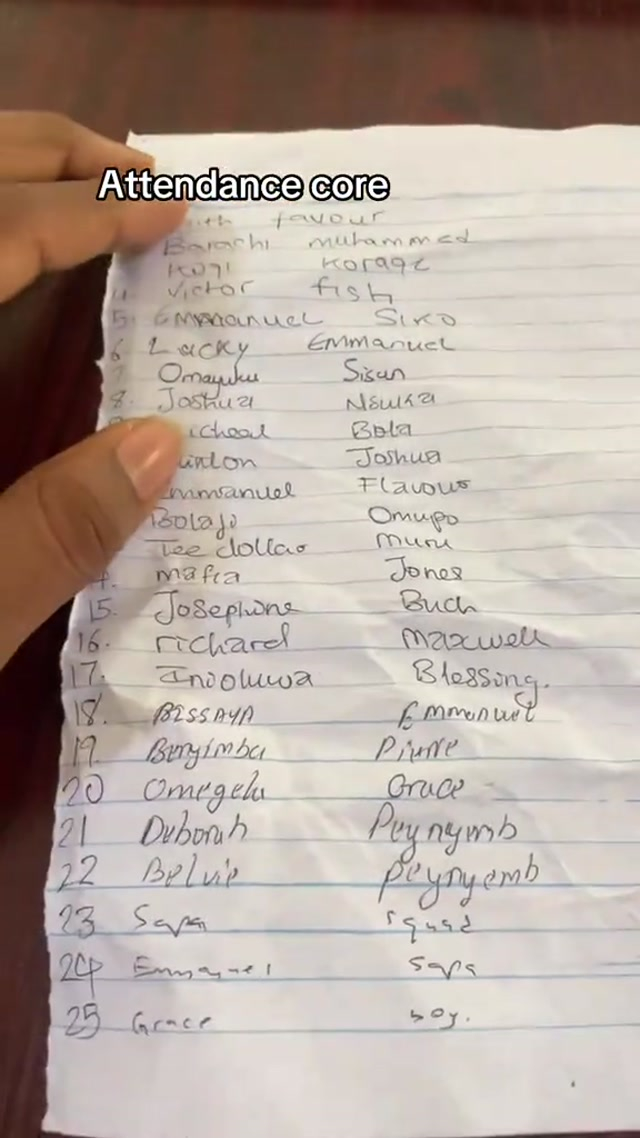 Attendance core
ith favour
Barachi muhammed
Kogi Korage
4. Victor fish
5. Emmanuel Siko
6 Lacky Emmanuel
7 Omayuku Sisan
8. Joshua Nsuka
icheal Bola
uinton Joshua
Emmanuel Flavour
Bolaji Omupo
Tee dollar muru
4. mafia Jones
15. Josephine Buch
16. richard maxwell
17. Inioluwa Blessing.
18. BISSAYA Emmanuel
19 Pierre
20 Omegelu Grace
21 Deborah Peynyemb
22 Belvie peynyemb
23 Sapa squad
24 Emmanuel sapa
25 Grace boy.